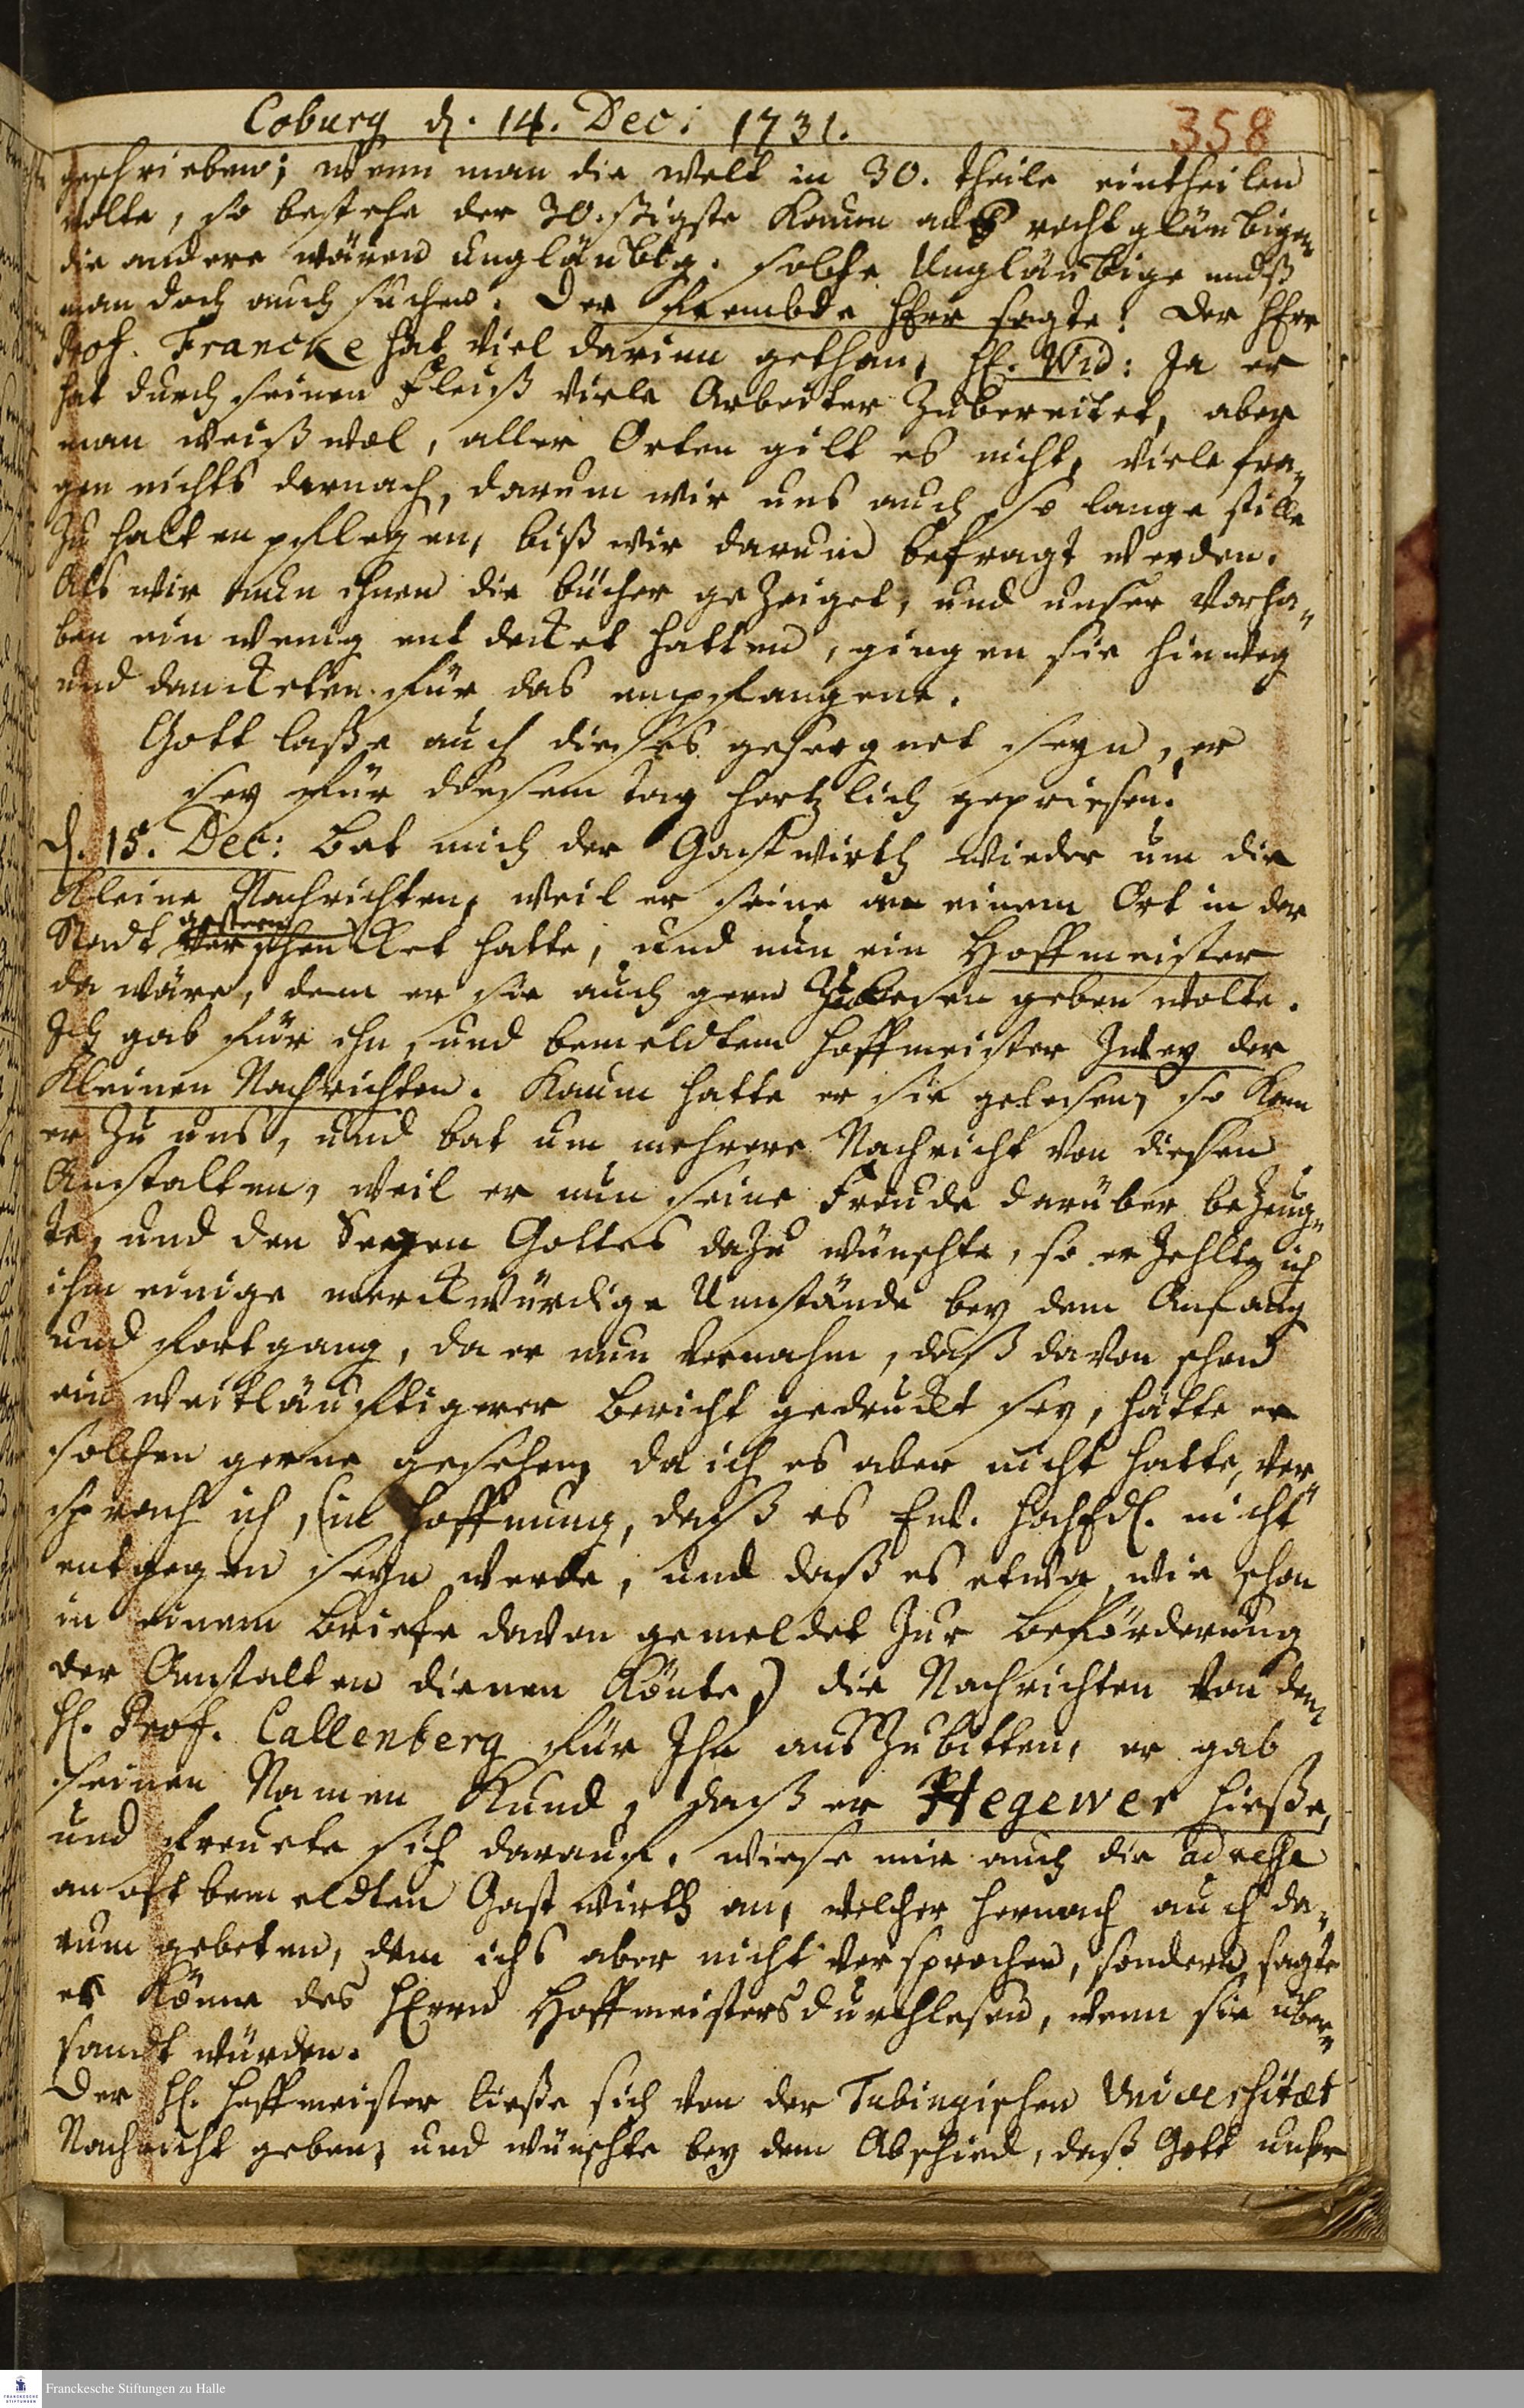 Coburg d. 14. Dec: 1731.
358
geschrieben; wenn man die Welt in 30. theile eintheilen
wolte, so bestehe der 30.ßigste kaum aus rechtgläubigen
die andere wären ungläubig. solche Ungläubige muß
man doch auch suchen. Der frembde HErr sagte: Der HErr
Prof. Francke hat viel darinn gethan, H. Wid: Ja er
hat durch seinen Fleiß viele Arbeiter zubereitet, aber
man weiß wol, aller Orten gilt es nicht, viele fra-
gen nichts darnach, darum wir uns auch so lange stille
zu halten pflegen, biß wir darum befragt werden.
Als wir nun ihnen die bücher gezeiget, und unser Vorha-
ben ein wenig entdecket hatten, gingen sie hinweg
und danckten für das empfangene.
Gott laße auch dieses gesegnet seyn, er
sey für diesem tag hertzlich gepriesen.
d. 15. Dec: bat mich der Gastwirth wieder um die
kleine Nachrichten, weil er seine an einem Ort in der
gestern
Stadt verschencket hatte, und nun ein Hoffmeister
da wäre, dem er sie auch gern zu lesen geben wolte.
Ich gab für ihn, und bemeldtem Hoffmeister zwey der
kleinen Nachrichten. Kaum hatte er sie gelesen, so kam
er zu uns, und bat um mehrere Nachricht von diesen
Anstalten, weil er nun seine Freude darüber bezeug-
te, und den Seegen Gottes dazu wünschte, so erzehlte ich
ihm einige merckwürdige Umstände bey dem Anfang
und fortgang, da er nun vernahm, daß davon schon
ein weitläufftigerer bericht gedruckt sey, hätte er
solchen gerne gesehen, da ich es aber nicht hatte, ver-
sprach ich, (in Hoffnung, daß es Ew. HochEd. nicht
entgegen seyn werde, und daß es etwa, wie schon
in einem briefe davon gemeldet zur beförderung
der Anstalten dienen könte) die Nachrichten von dem
H. Prof. Callenberg für Ihn auszubitten, er gab
seinen Namen kund, daß er Hegewer hieße,
und freuete sich darauf. wiese mir auch die adresse
an offt bemeldten Gastwirth an, welcher hernach auch da-
rum gebeten, dem ichs aber nicht versprochen, sondern sagte
er könne des HErrn Hoffmeisters durchlesen, wenn sie über-
sandt würden.
Der H. Hoffmeister ließe sich von der Tubingischen Universitæt
Nachricht geben, und wünschte bey dem Abschied, daß Gott unser
Franckesche Stiftungen zu Halle